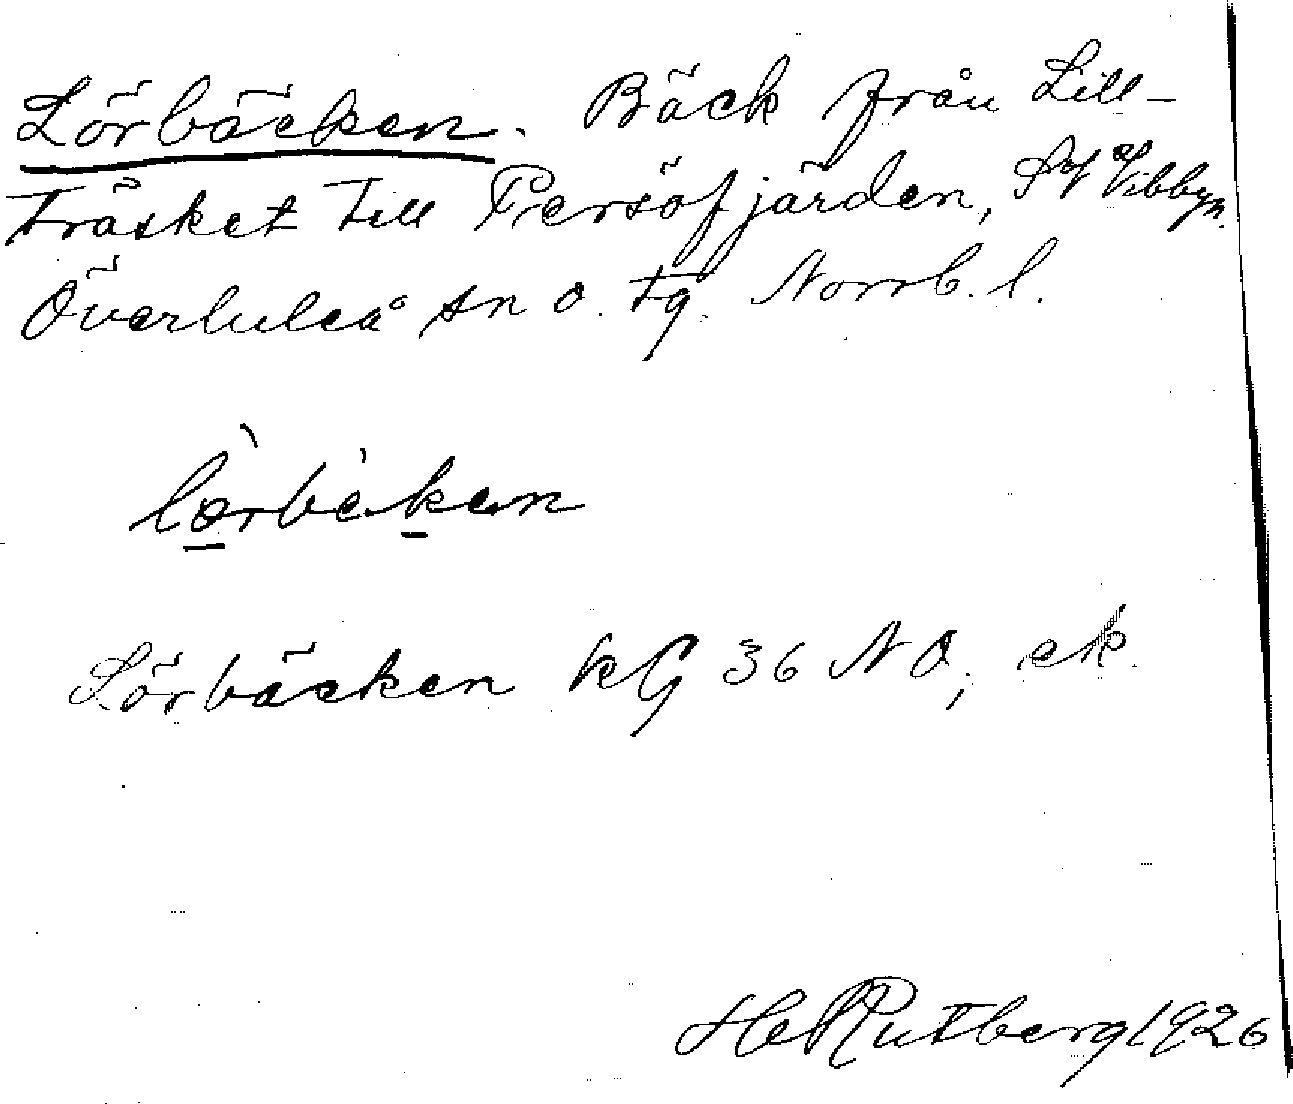 Lörbäcken. Bäck från Lill-
träsket till Persöfjärden, Vibbyn.
Överluleå sn o. tg. Norrb. l.
lörbèken
Lörbäcken KG 36 NO, ek.
Rutberg 1926